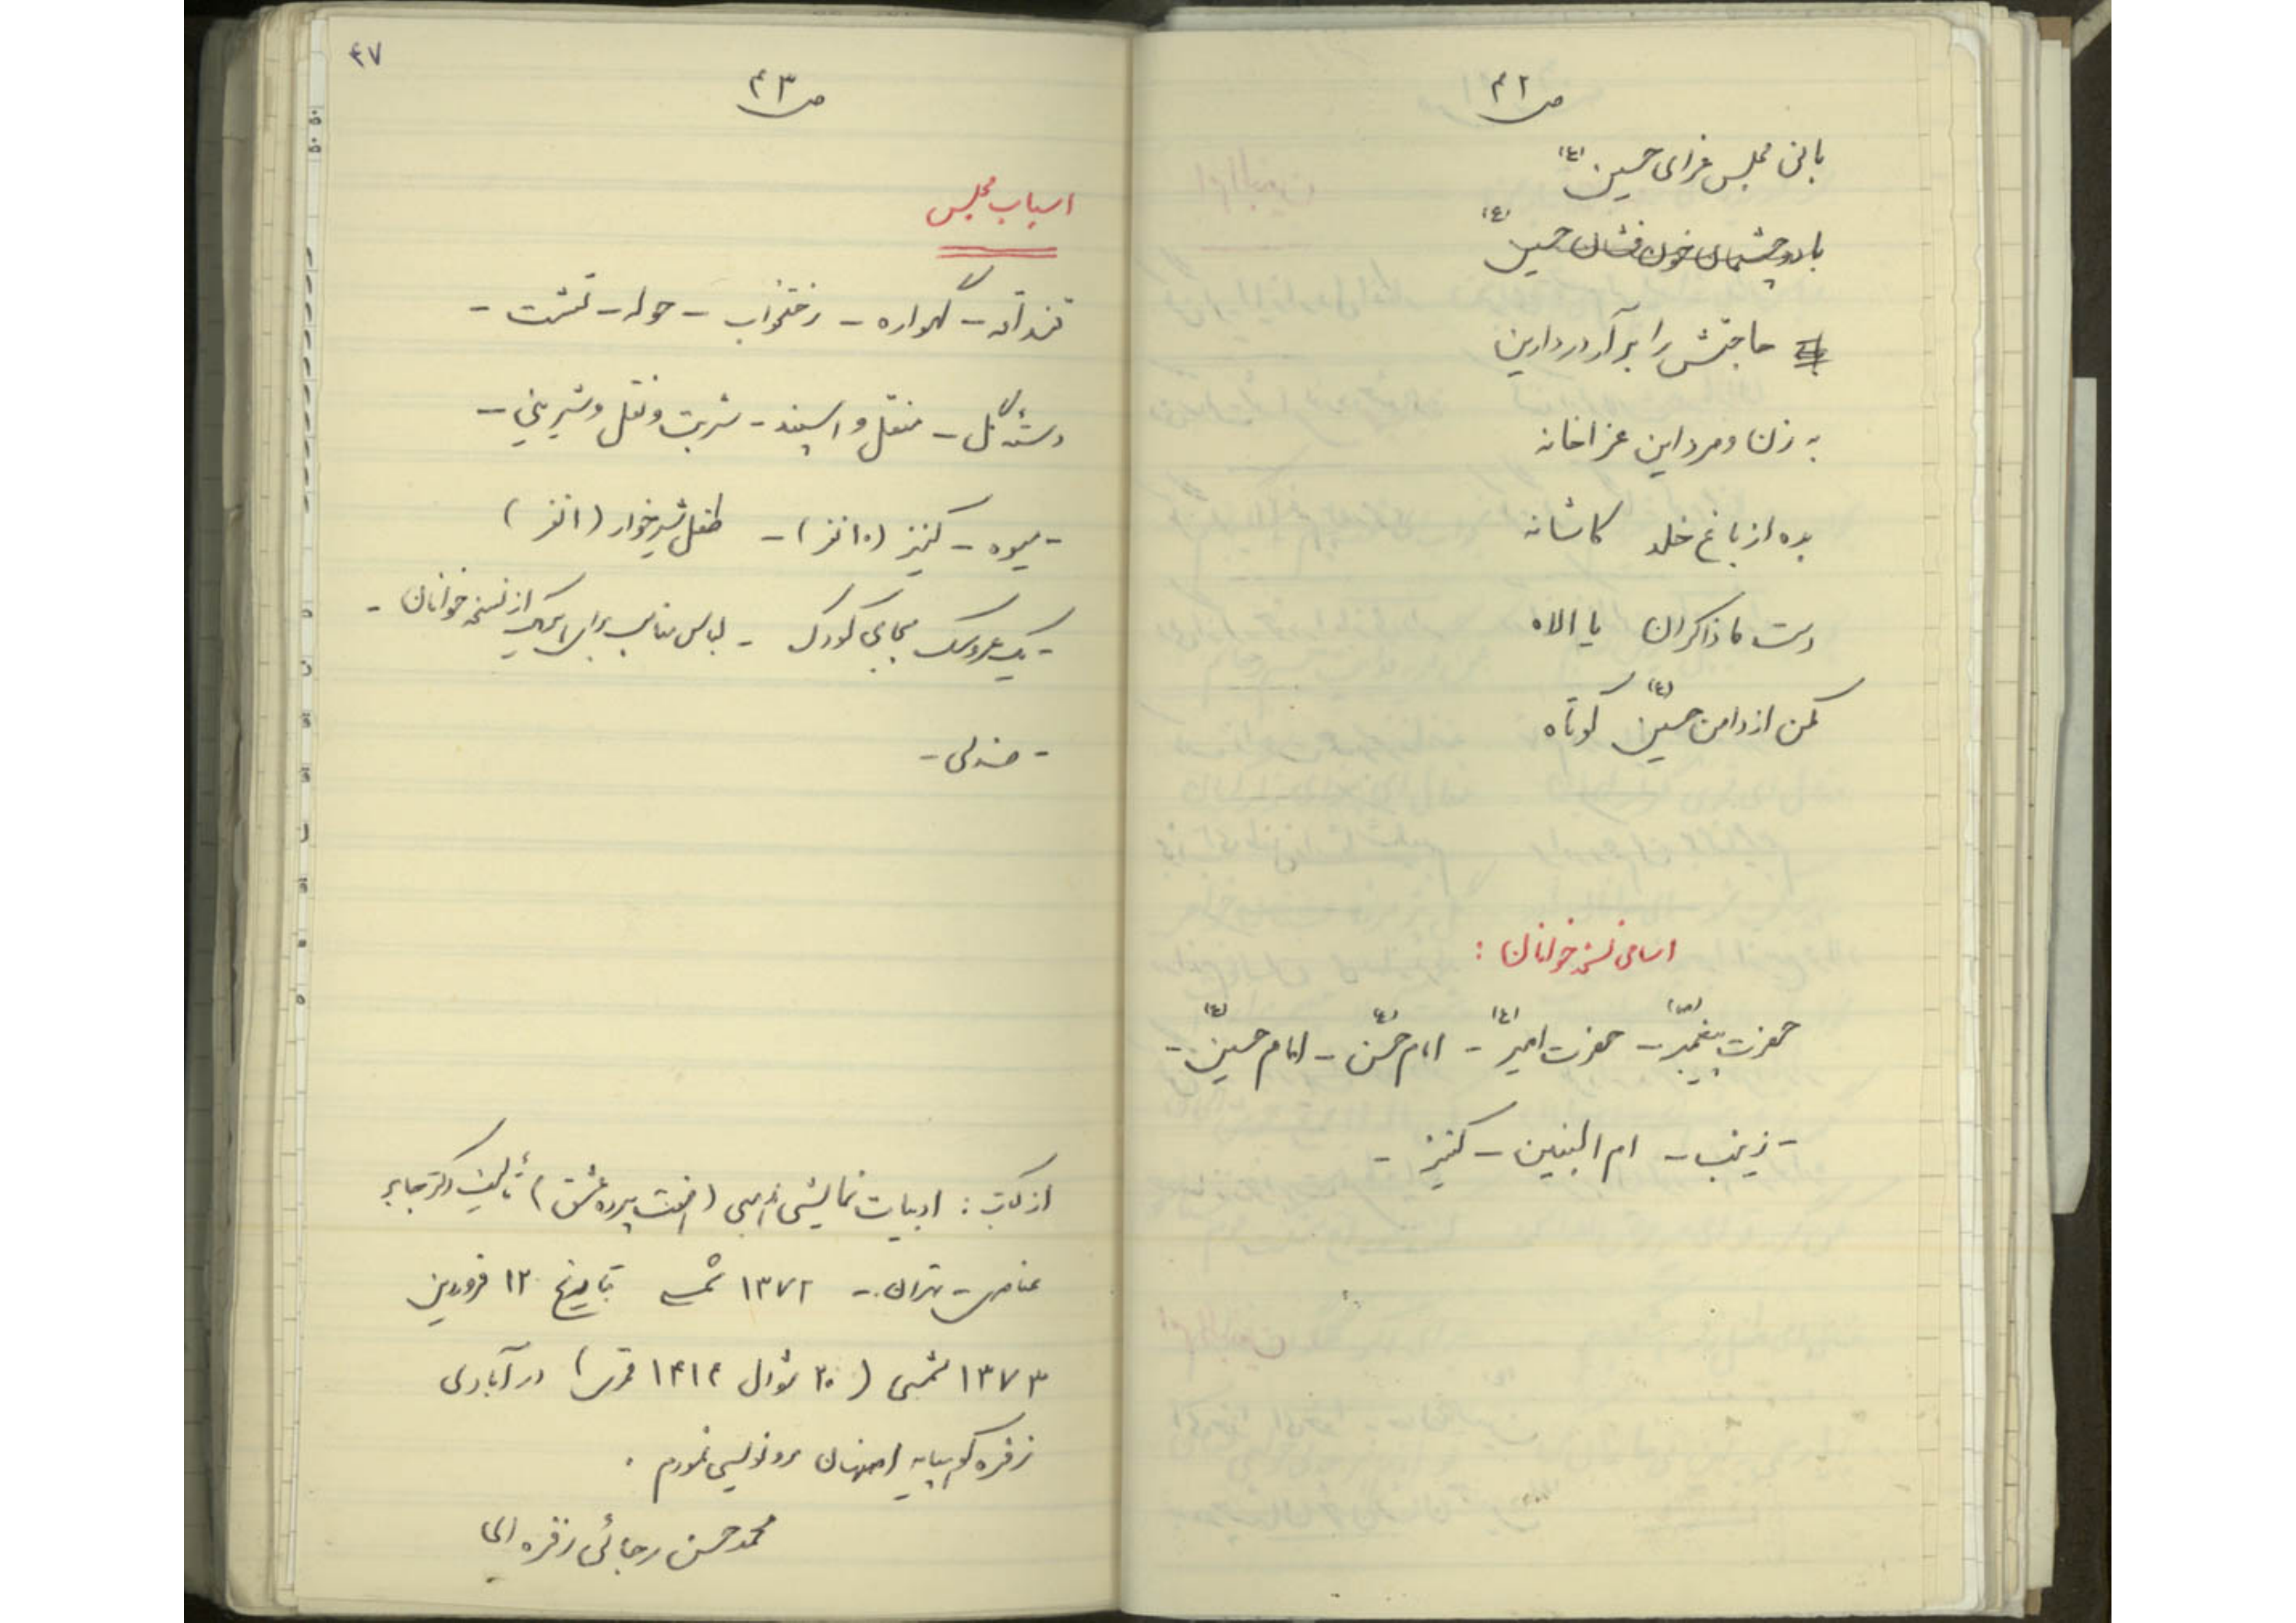 ص ۴۲
بانی مجلس عزای حسین (ع)
با دو چشمان خون فشان حسین (ع)
حاجتش را برآر در دارین
به زن و مرد این عزاخانه
بده از باغ خلد کاشانه
دست ما ذاکران یا الاه
مکن از دامن حسین (ع) کوتاه
اسامی نسخه خوانان :
حضرت پیغمبر (ص) - حضرت امیر (ع) - امام حسن (ع) - امام حسین (ع) -
- زینب - ام البنین - کنیز -
۴۷
ص ۴۳
اسباب مجلس
قنداقه - گهواره - رختخواب - حوله - تشت -
دسته گل - منقل و اسپند - شربت و نقل و شیرینی -
- میوه - کنیز (۱۰ نفر) - طفل شیرخوار (۱ نفر)
- یک عروسک بجای کودک - لباس مناسب برای هریک از نسخه خوانان -
- صندلی -
از کتاب : ادبیات نمایشی مذهبی (هفت پرده عشق) تألیف دکتر جابر
عناصری - تهران - ۱۳۷۲ شمسی بتاریخ ۱۲ فروردین
۱۳۷۳ شمسی (۲۰ شوال ۱۴۱۴ قمری) در آبادی
زفره کوهپایه اصفهان رونویسی نمودم .
محمد حسن رجائی زفره ای